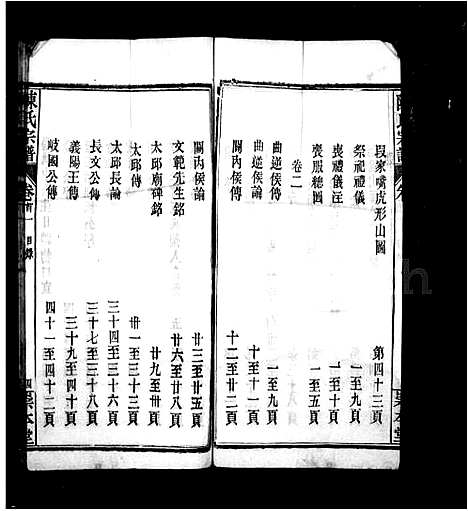 段家嘴虎形山圖 第四十三頁
祭祀禮儀 一至九頁
喪禮儀注 一至十頁
喪服總圖 一至五頁
卷二
曲逆侯論 一至九頁
曲逆侯傳 十至十一頁
關內侯傳 十二至廿二頁
關內侯論 廿三至廿五頁
文範先生銘 廿六至廿八頁
太邱廟碑銘 廿九至卅頁
太邱傳 卅一至三十三頁
太邱長論 三十四至三十六頁
長文公傳 三十七至三十八頁
義陽王傳 三十九至四十頁
岐國公傳 四十一至四十二頁
陳氏宗譜 卷首一 目錄 四 聚本堂